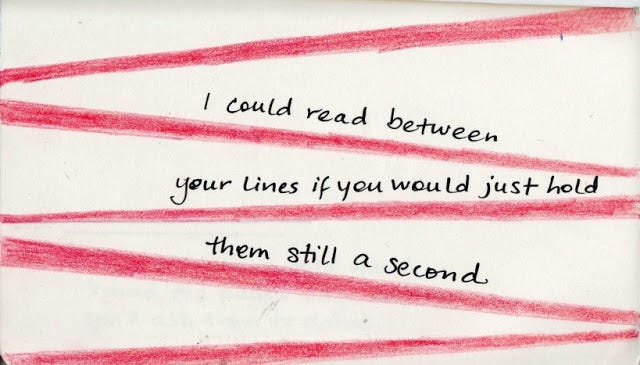 I could read between
your lines if you would just hold
them still a second